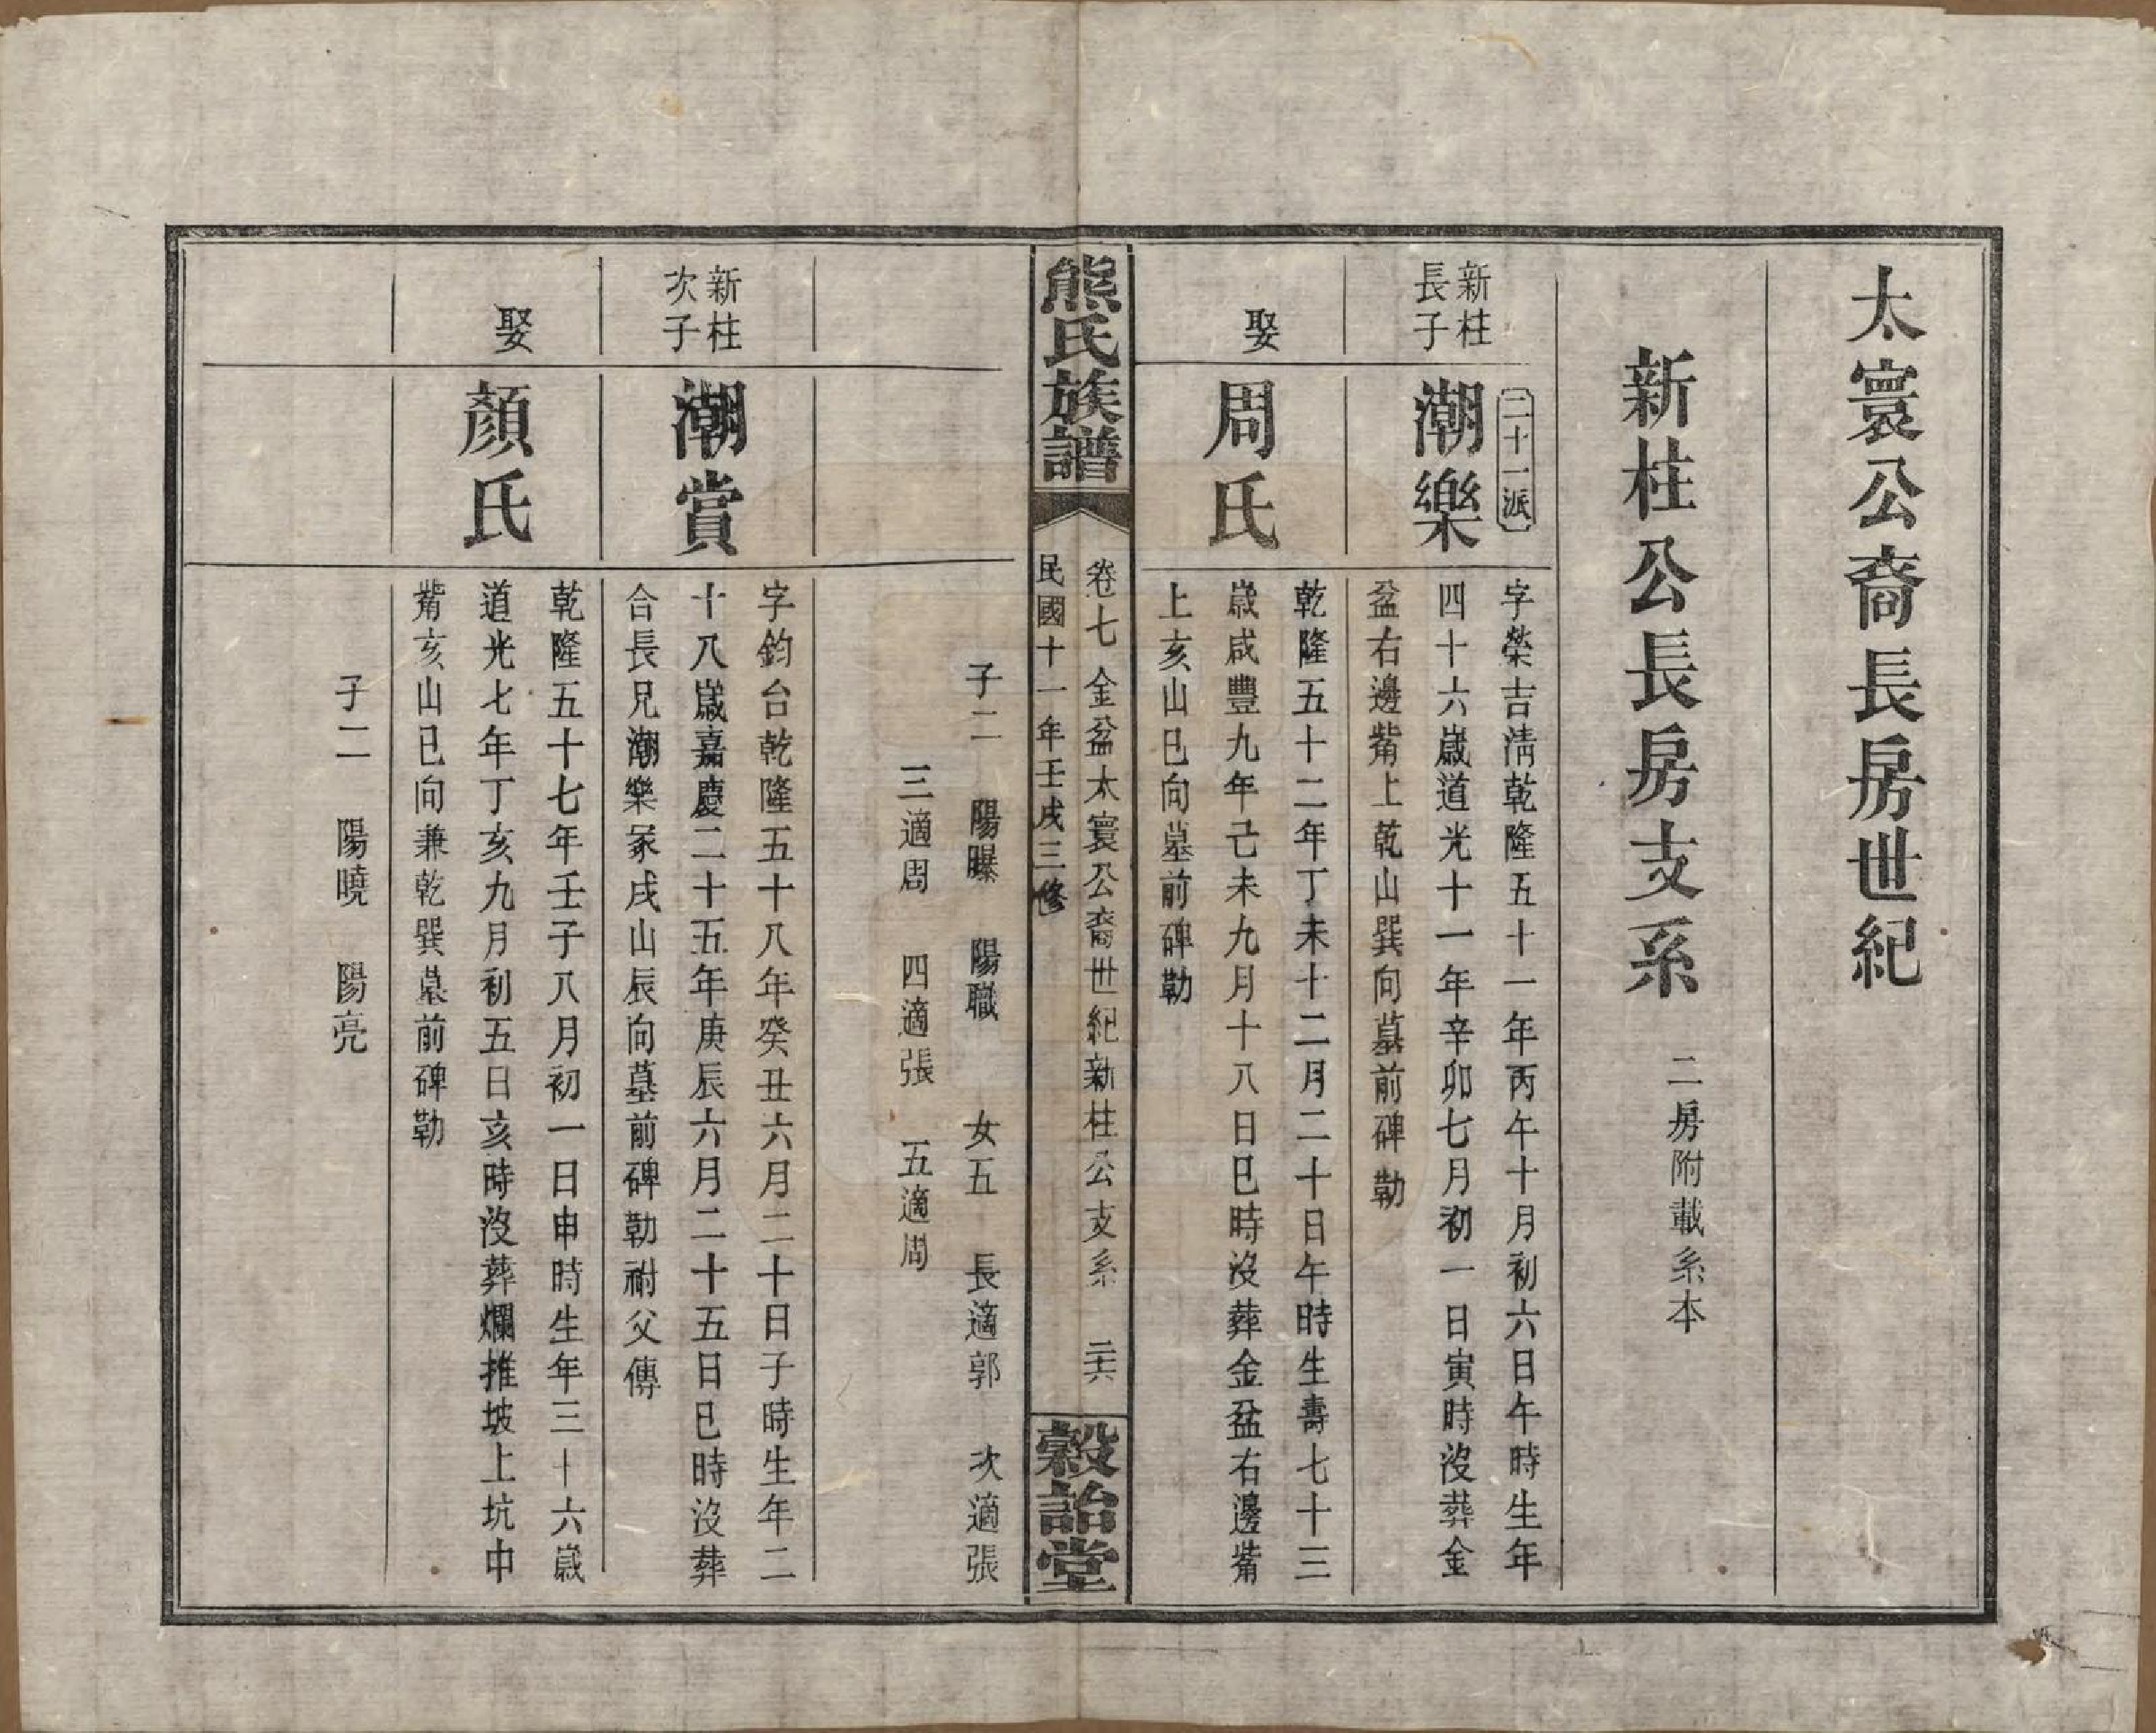 太寰公裔長房世紀
新柱公長房支系 二房附載系本
二十一派
新柱
長子
潮樂
字榮吉淸乾隆五十一年丙午十月初六日午時生年
四十六歲道光十一年辛卯七月初一日寅時沒葬金
盆右邊觜上乾山巽向墓前碑勒
娶
周氏
乾隆五十二年丁未十二月二十日午時生壽七十三
歲咸豐九年己未九月十八日巳時沒葬金盆右邊觜
上亥山巳向墓前碑勒
熊氏族譜
卷七 金盆太寰公裔世紀新柱公支系 二十六
民國十一年壬戌三修
穀詒堂
子二 陽曝 陽職 女五 長適郭 次適張
三適周 四適張 五適周
新柱
次子
潮賞
字鈞台乾隆五十八年癸丑六月二十日子時生年二
十八歲嘉慶二十五年庚辰六月二十五日巳時沒葬
合長兄潮樂冢戌山辰向墓前碑勒祔父傳
娶
顏氏
乾隆五十七年壬子八月初一日申時生年三十六歲
道光七年丁亥九月初五日亥時沒葬爛推坡上坑中
觜亥山巳向兼乾巽墓前碑勒
子二 陽曉 陽亮